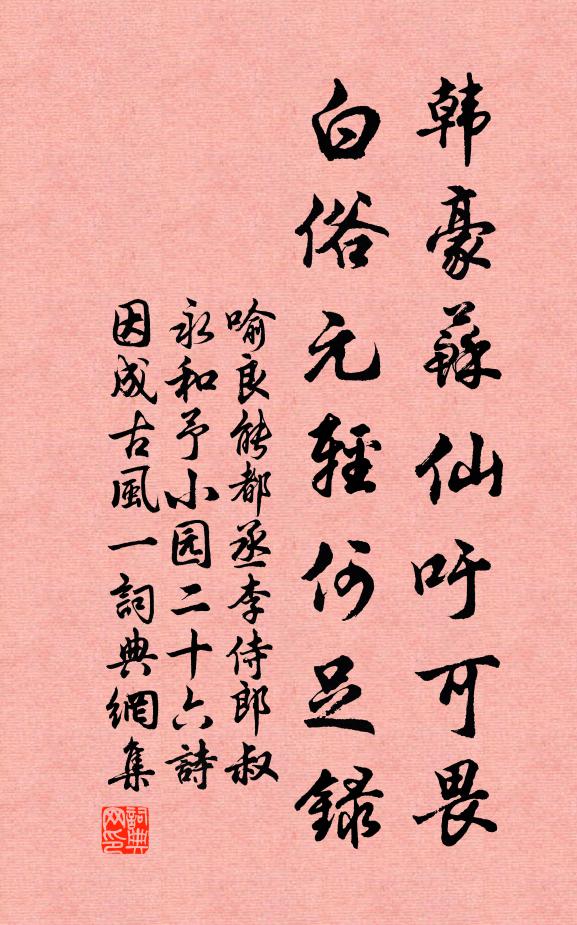 韩豪蘇仙吁可畏
白俗元輕何足録
喻良能都丞李侍郎叔
永和予小园二十六詩
因成古風一詞典網集
詞典网印